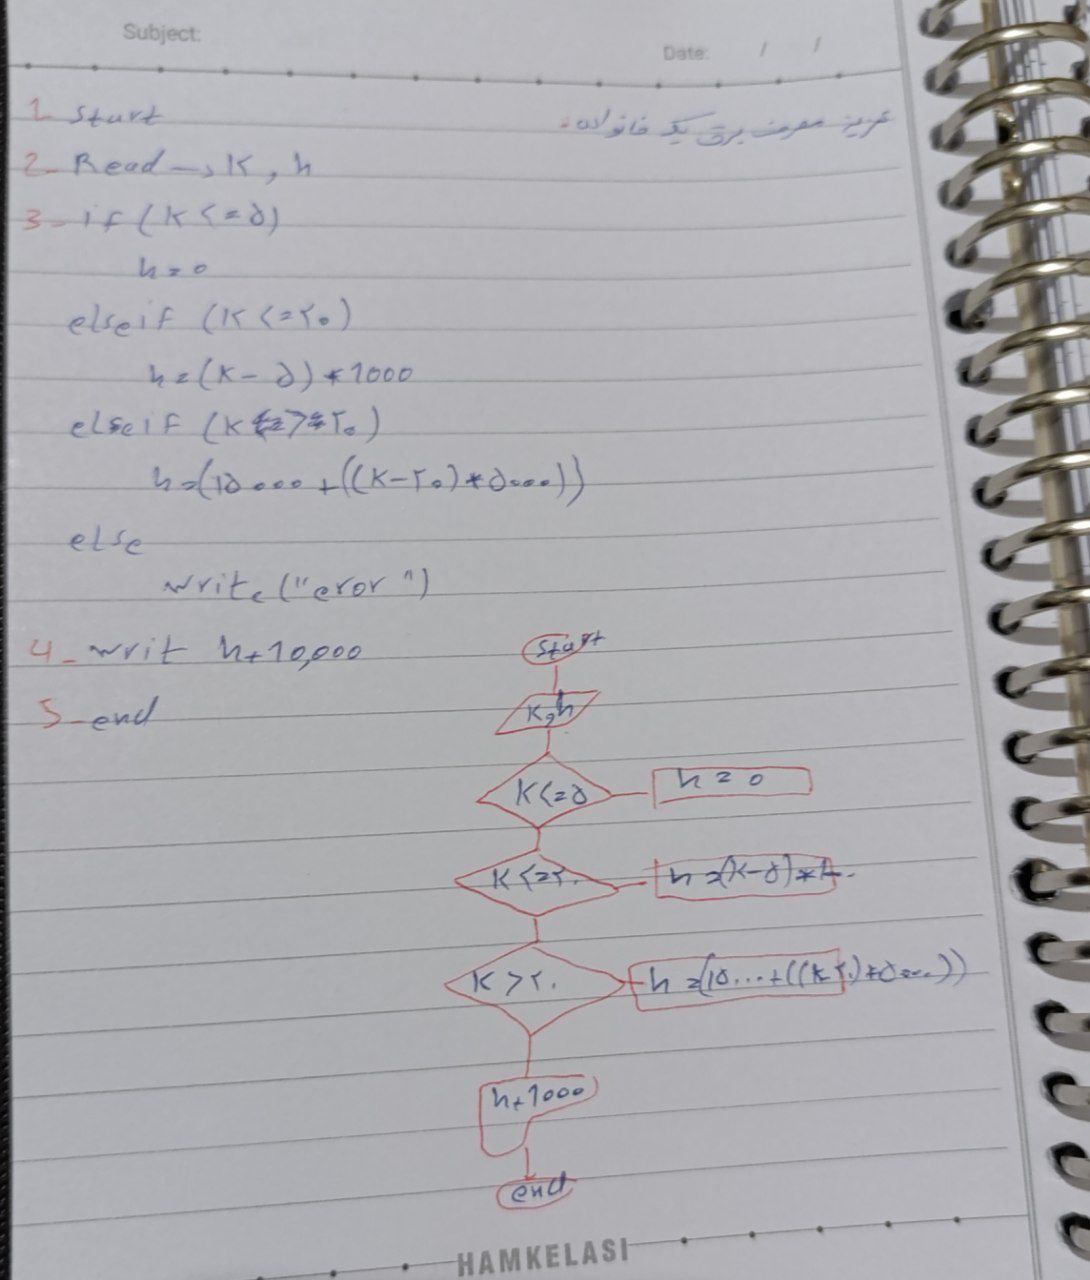 Subject:
Date: / /
مصرف برق یک خانواده
1. Start
2- Read → K, h
3- if (K <= ۵)
h = 0
elseif (K <= ۲۰)
h = (K - ۵) * 1000
elseif (K > ۲۰)
h = (1۵۰۰۰ + ((K - ۲۰) * ۵۰۰۰))
else
write ("eror")
4- writ h + 10,000
5- end
Start
K, h
K <= ۵
h = 0
K <= ۲۰
h = (K - ۵) *
K > ۲۰
h = (1۵۰۰۰ + ((K ۲۰) * ۵۰۰۰))
h + 1000
end
HAMKELASI